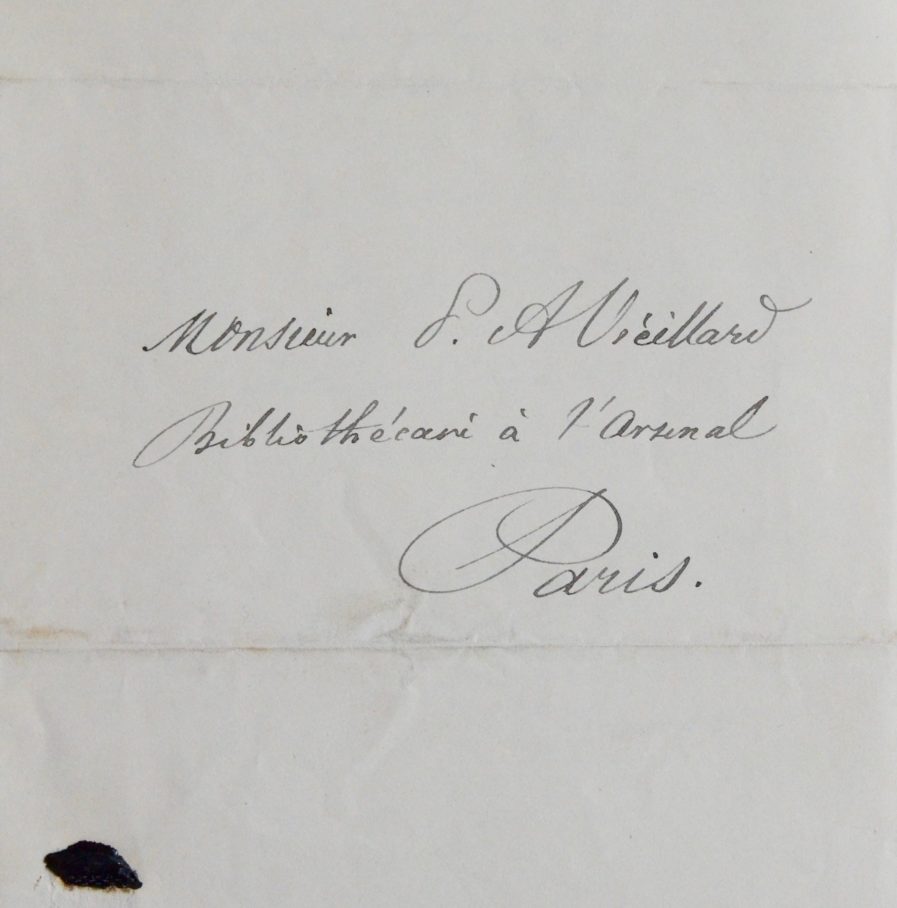 Monsieur P. A Viéillard
Bibliothécaire à l'Arsenal
Paris.